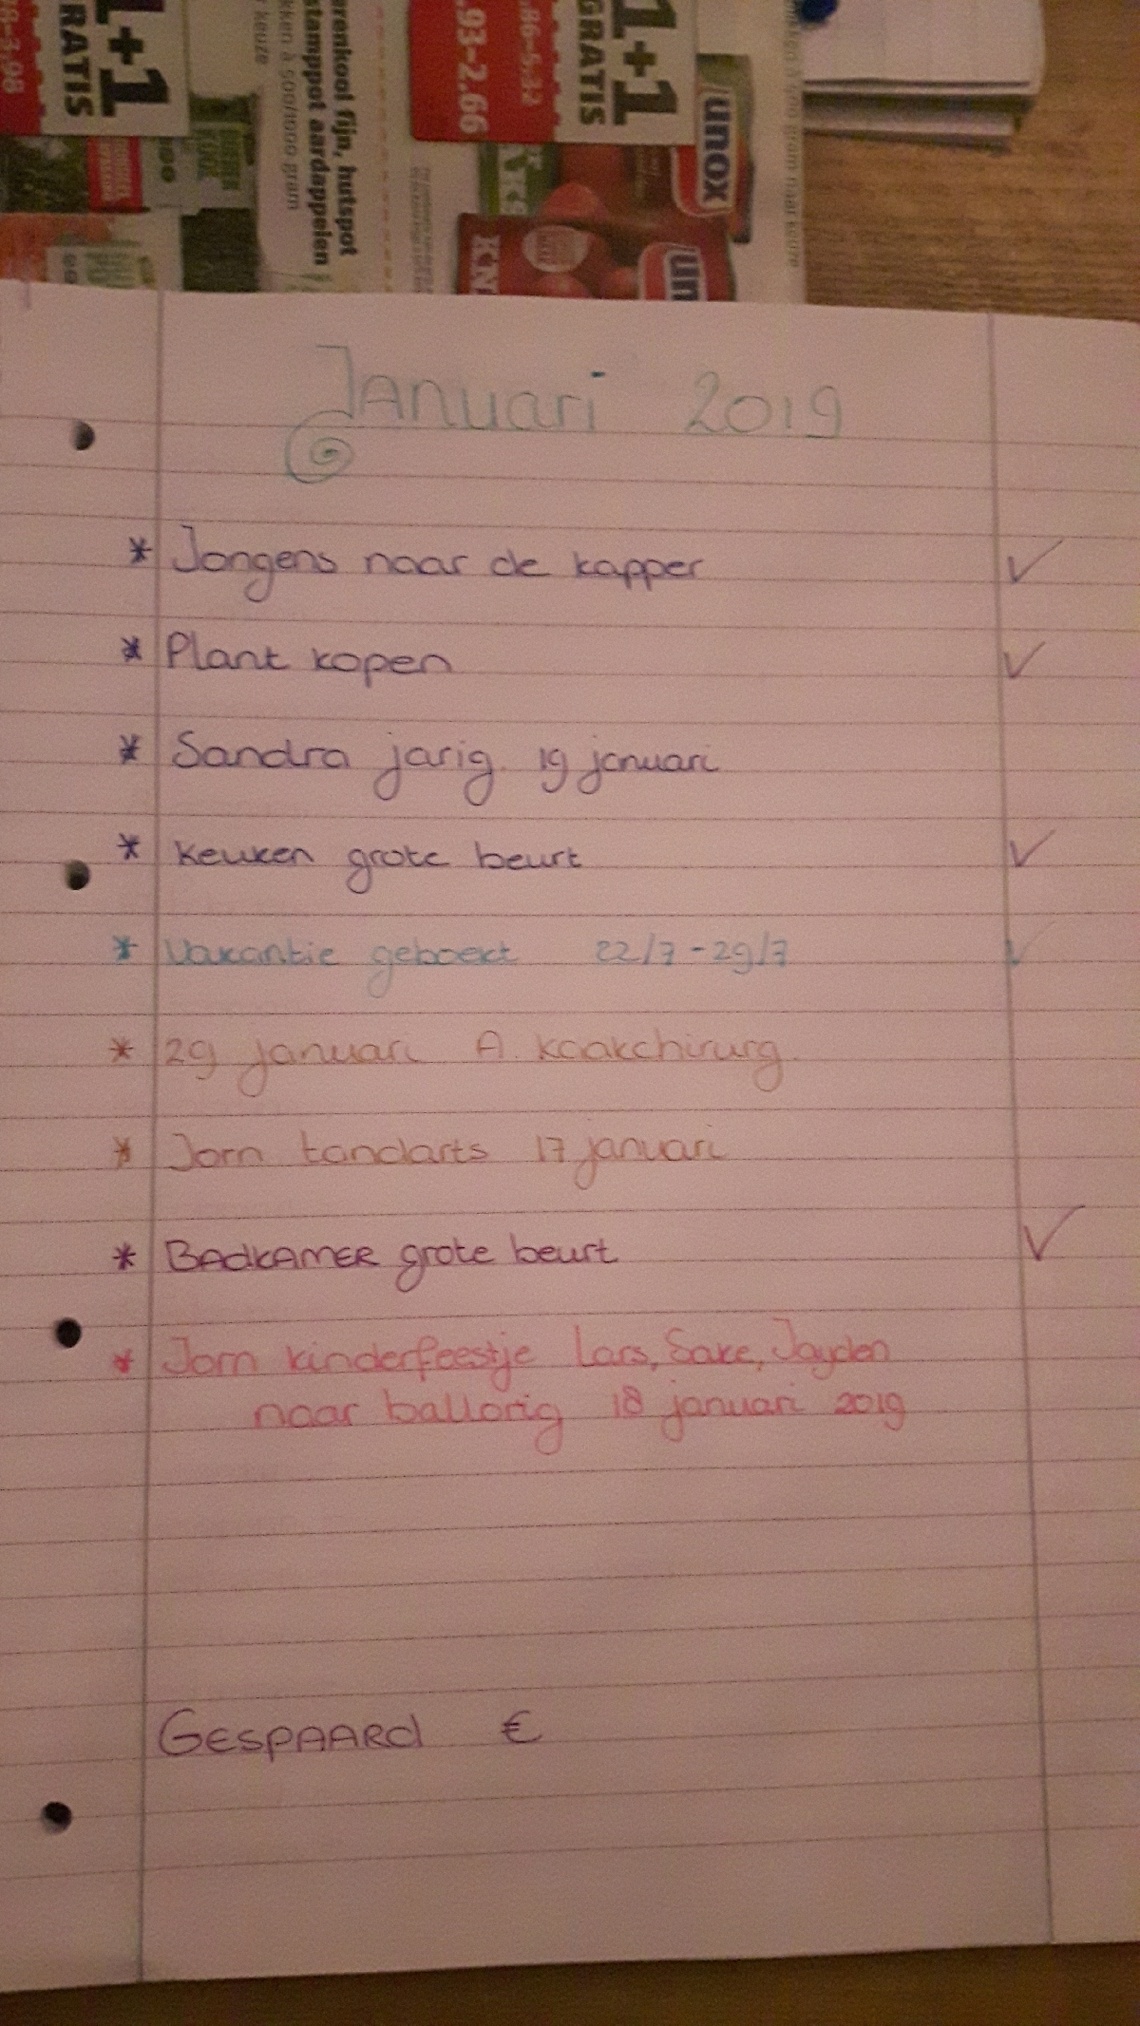 1+1
RATIS
1+1
GRATIS
.86-5.32
.93-2.66
renkool fijn, hutspot
stamppot aardappelen
kken à 500/1000 gram
keuze
unox
KN
un
Januari 2019
* Jongens naar de kapper ✓
* Plant kopen ✓
* Sandra jarig. 19 januari
* Keuken grote beurt ✓
* Vakantie geboekt 22/7 - 29/7 ✓
* 29 januari A. kaakchirurg.
* Jorn tandarts 17 januari
* BADKAMER grote beurt ✓
* Jorn kinderfeestje Lars, Sake, Jayden
naar ballorig 18 januari 2019
GESPAARD €